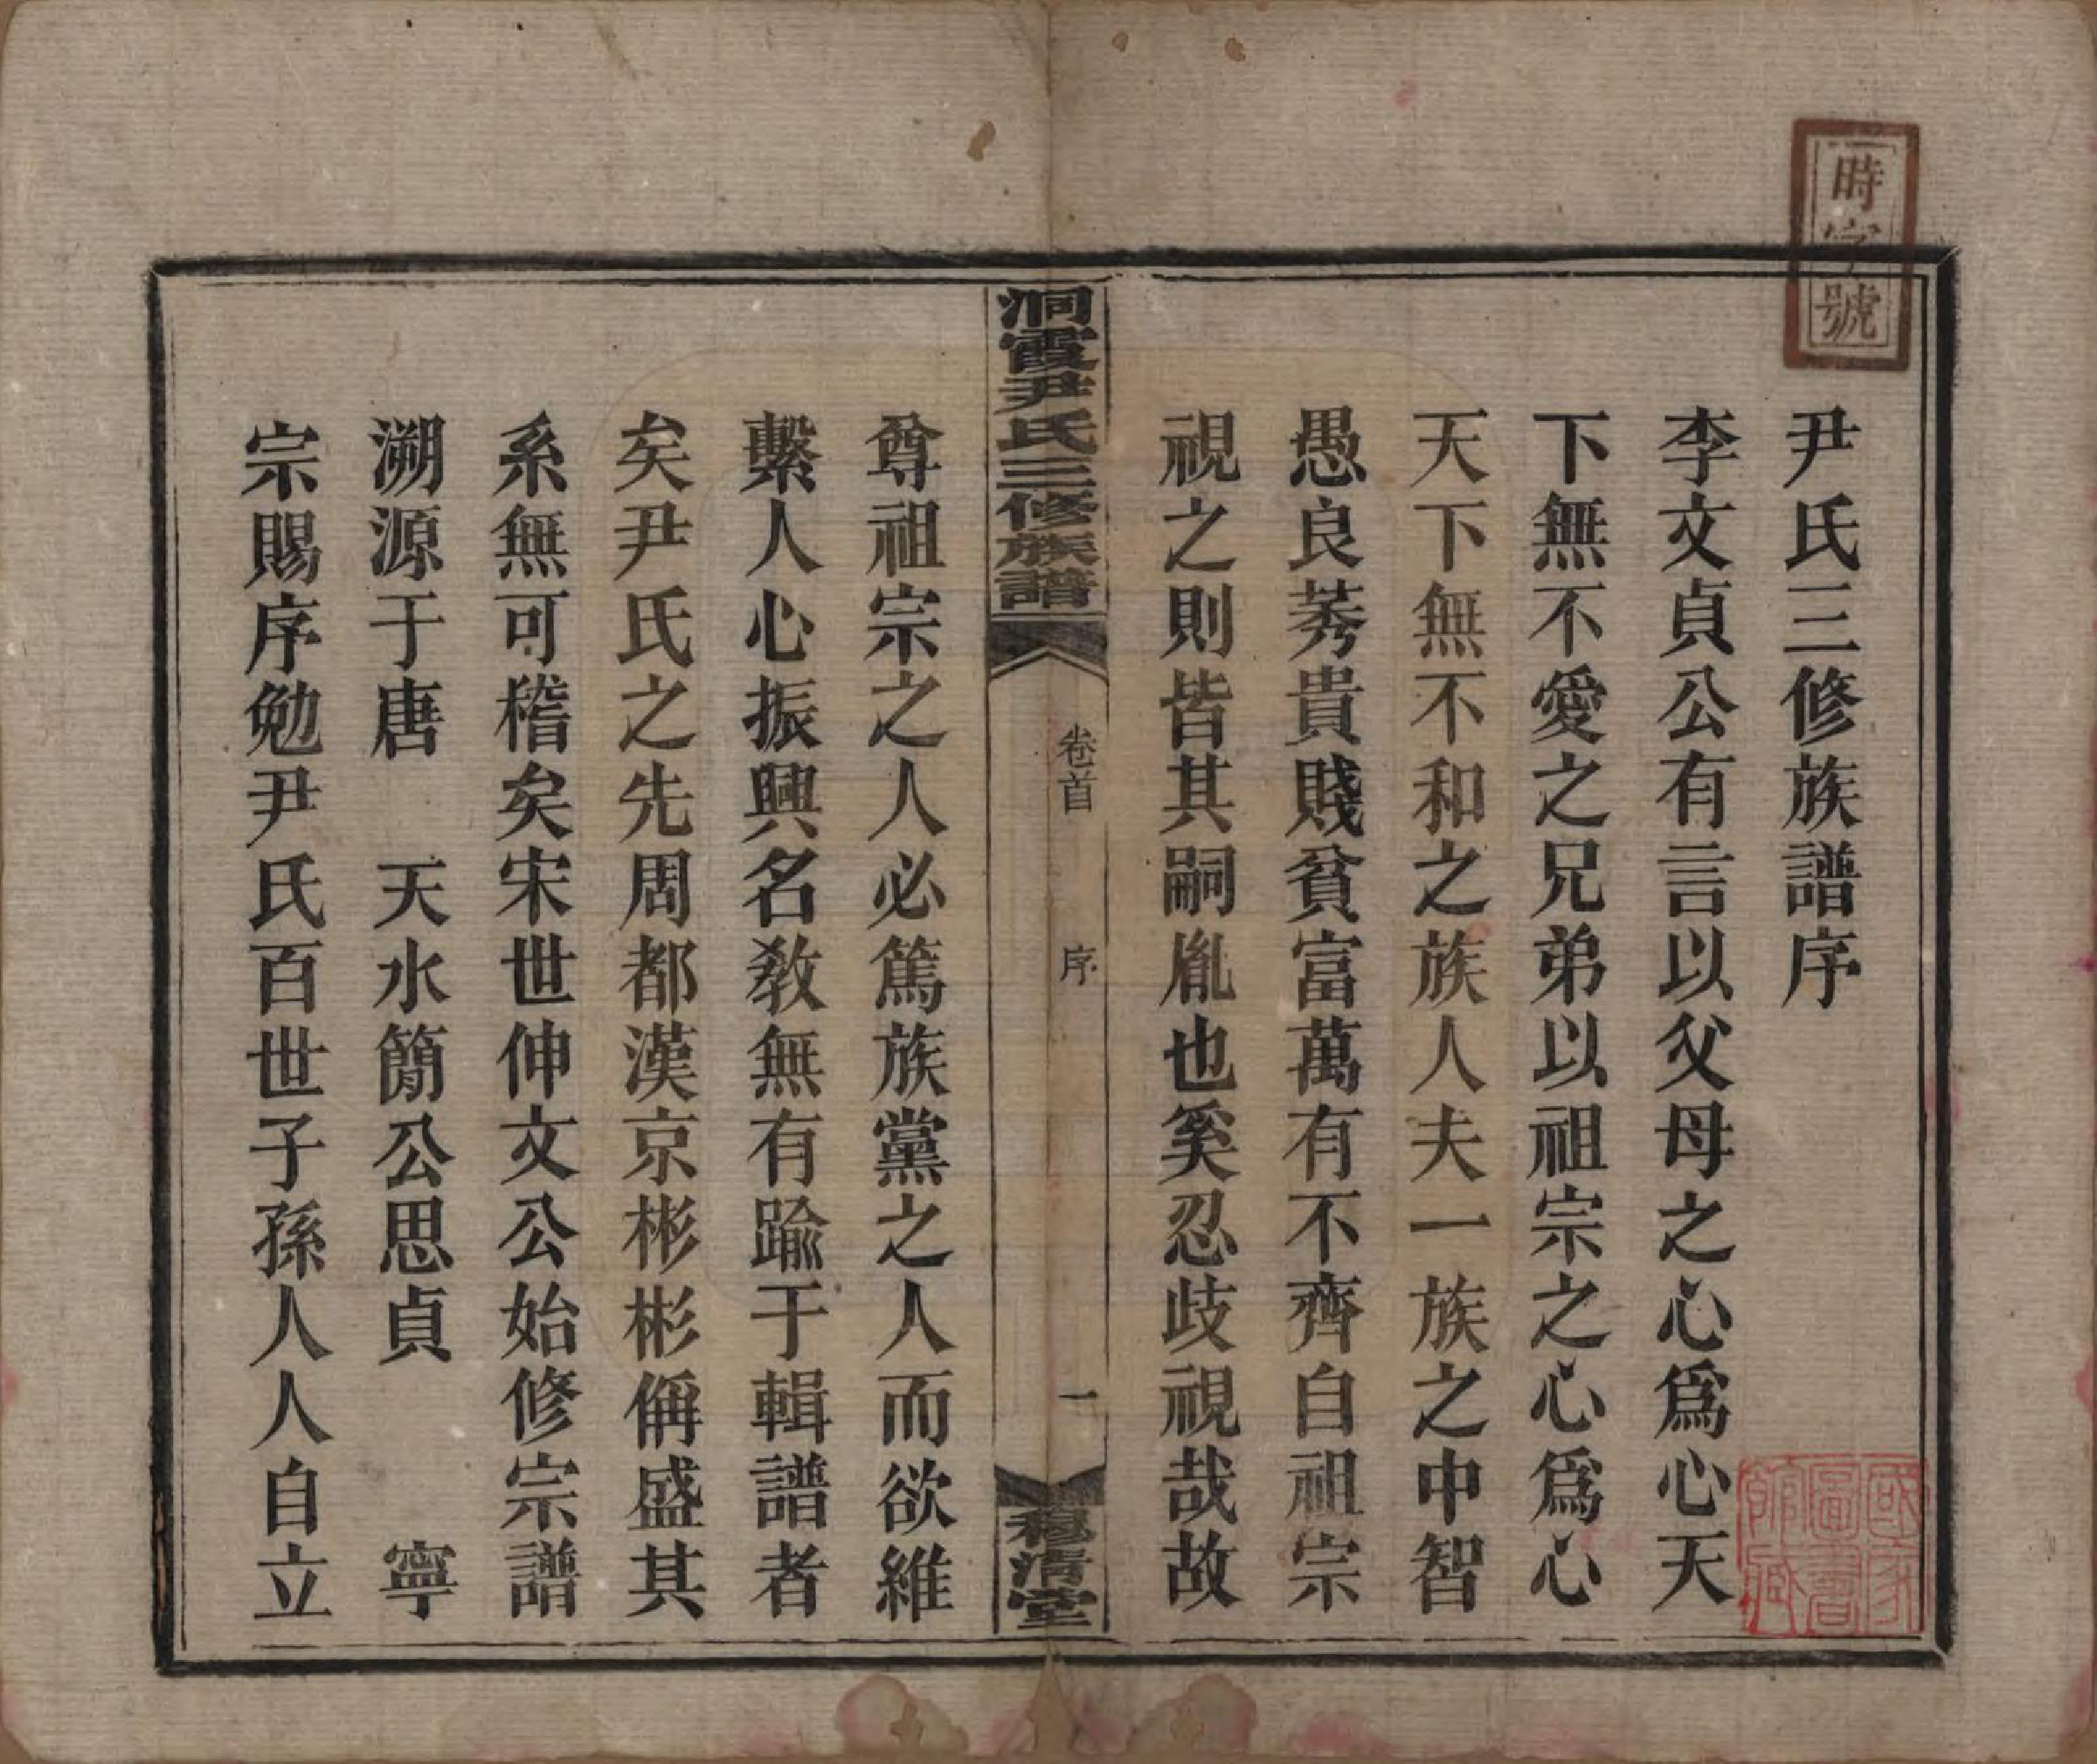 時字號
尹氏三修族譜序
李文貞公有言以父母之心爲心天
下無不愛之兄弟以祖宗之心爲心
天下無不和之族人夫一族之中智
愚良莠貴賤貧富萬有不齊自祖宗
視之則皆其嗣胤也奚忍歧視哉故
洞霞尹氏三修族譜
卷首
序
一
穆清堂
尊祖宗之人必篤族黨之人而欲維
繫人心振興名教無有踰于輯譜者
矣尹氏之先周都漢京彬彬稱盛其
系無可稽矣宋世伸文公始修宗譜
溯源于唐 天水簡公思貞 寧
宗賜序勉尹氏百世子孫人人自立
國家圖書館藏